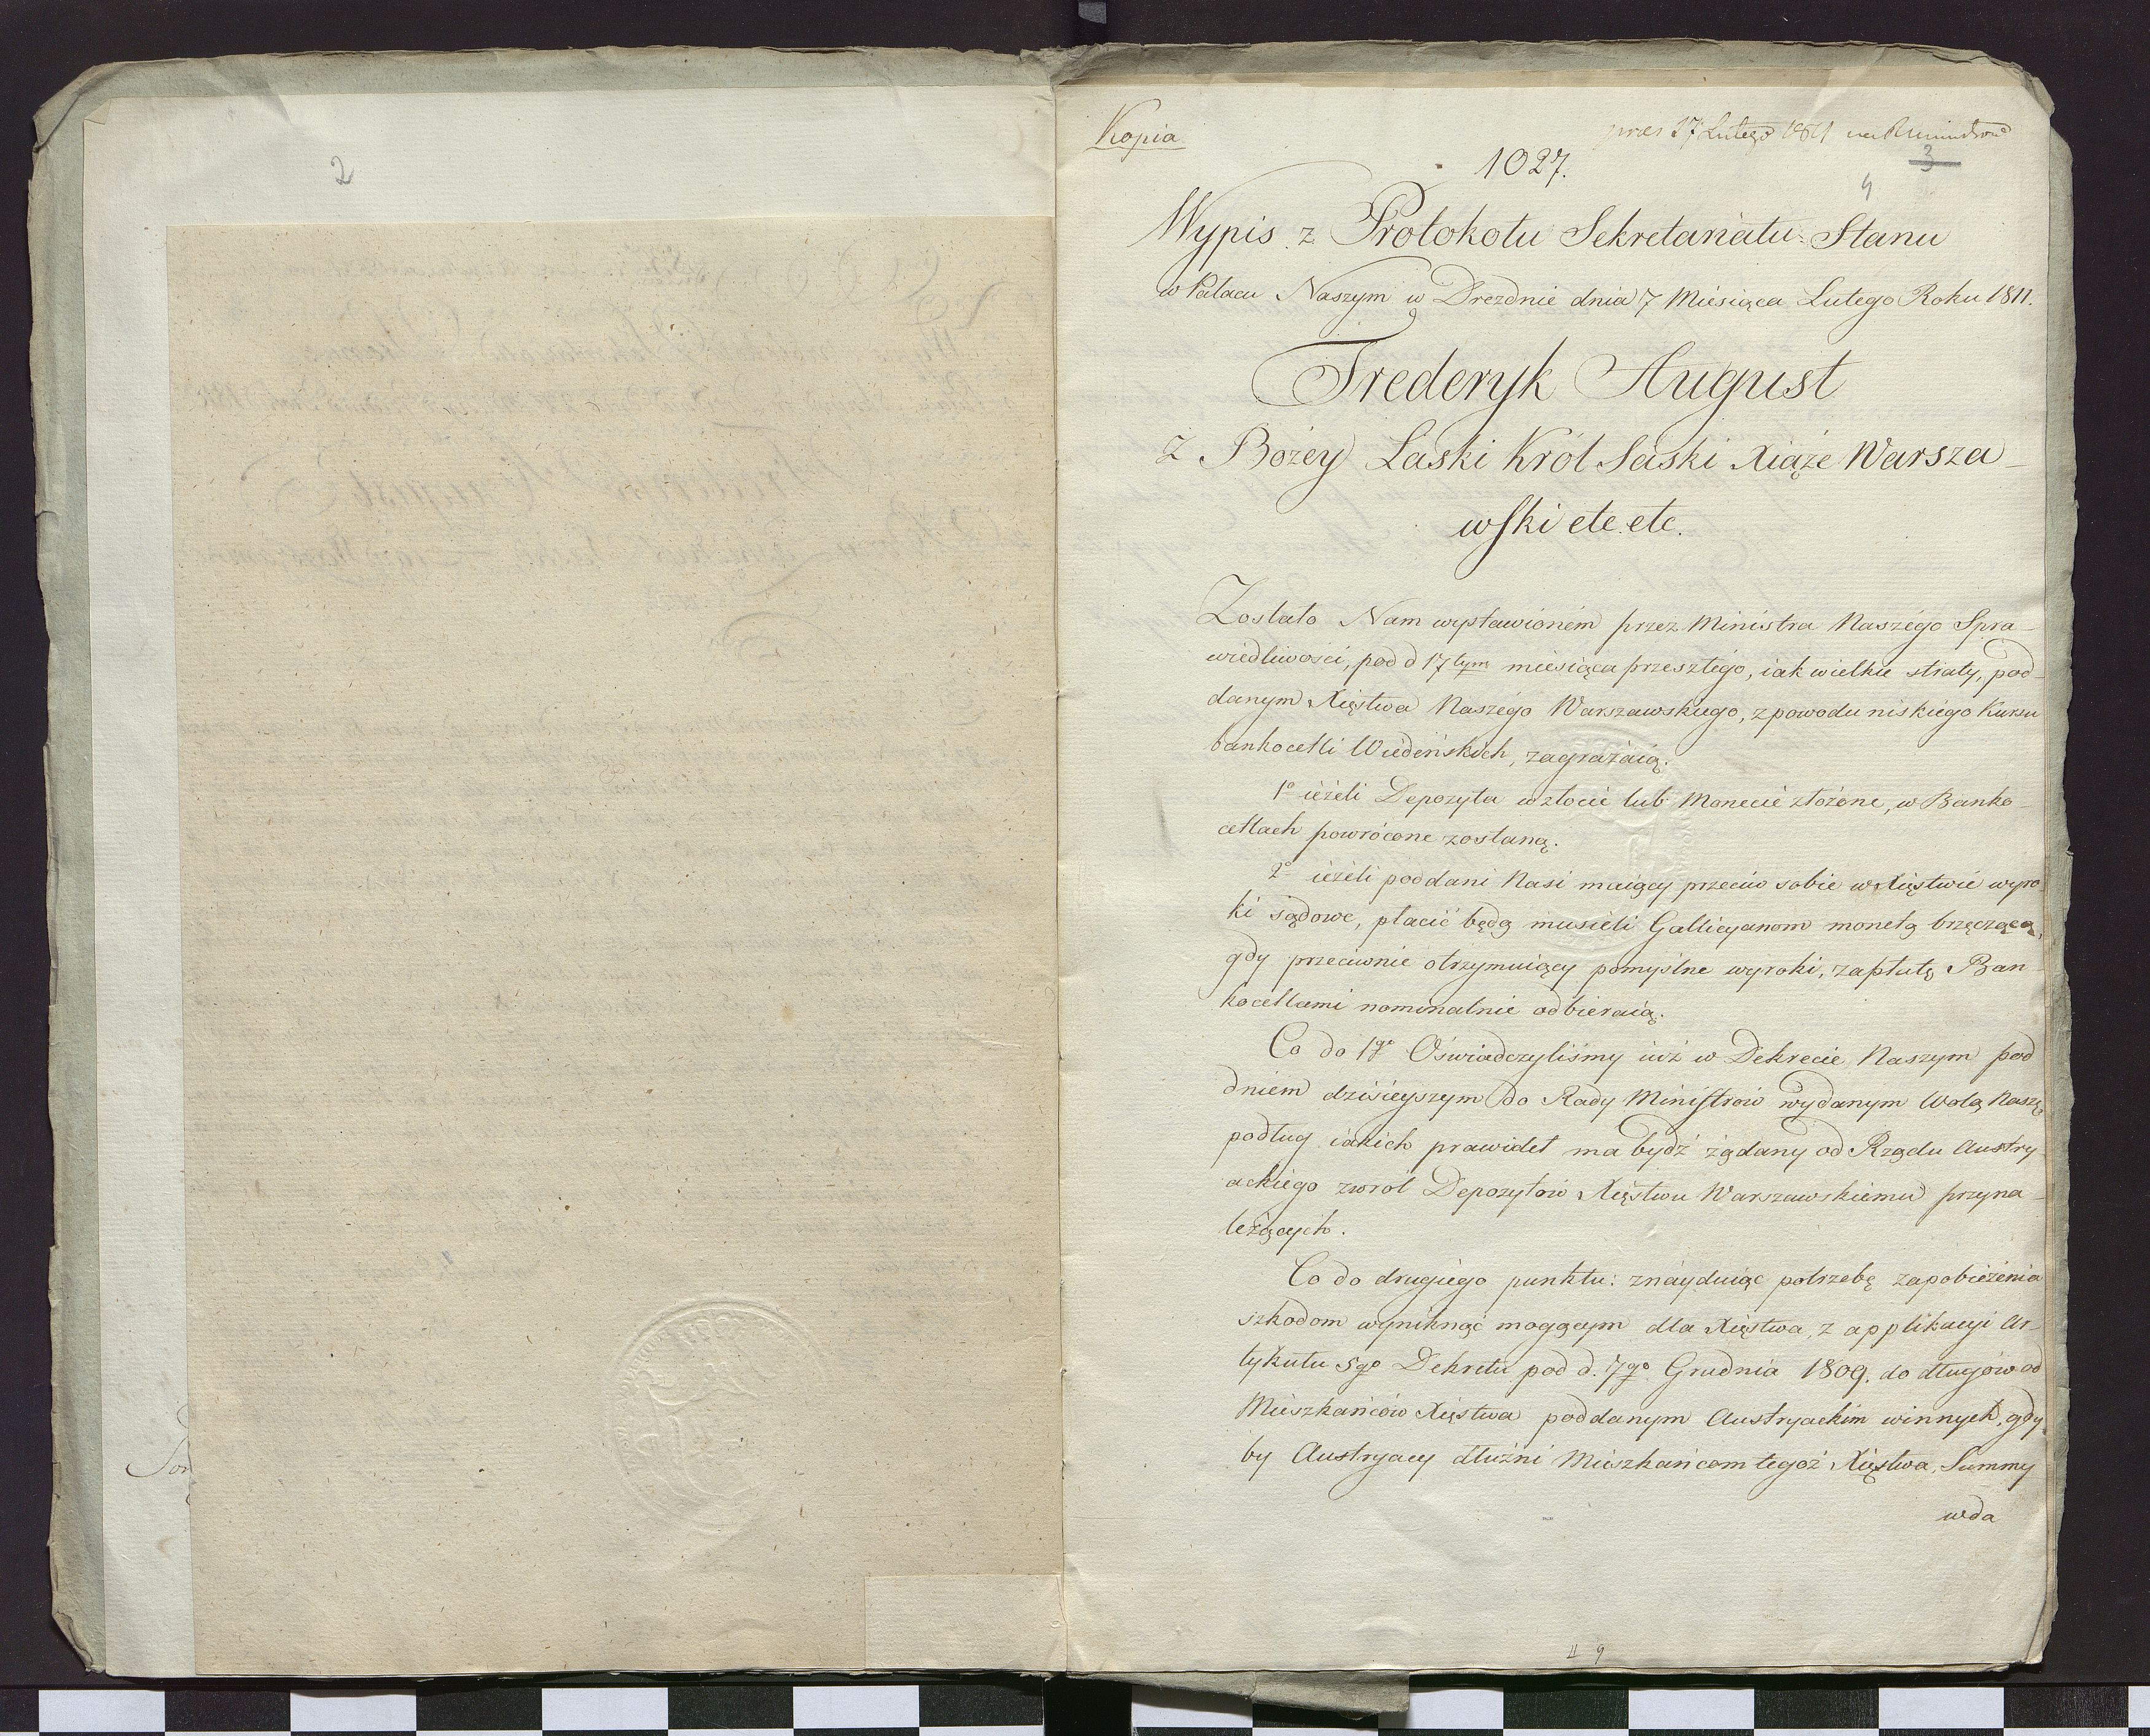 2
Kopia
17 Lutego 1811
3
1027.
4
Wypis z Protokołu Sekretariatu Stanu
w Pałacu Naszym w Dreznie dnia 7 Miesiąca Lutego Roku 1811.
Frederyk August
z Bożey Łaski Król Saski Xiąże Warsza-
wski etc. etc.
Zostało Nam wystawioném przez Ministra Naszégo Spra-
wiedliwości, pod d 17tym miesiąca przeszłégo, iak wielkie straty, pod-
danym Xięstwa Naszégo Warszawskiego, z powodu niskiégo Kursu
bankocetli Wiedéńskich, zagrażaią.
1o ieżeli Depozyta w złocie lub Monecie złożone, w Banko-
cetlach powrócone zostaną.
2o ieżeli poddani Nasi maiący przeciw sobie w Xięstwie wyro-
ki sądowe, płacić będą musieli Gallicyanom monetą brzęczącą,
gdy przeciwnie otrzymuiący pomyślne wyroki, zapłatę Ban-
kocetlami nominalnie odbieraią.
Co do 1go Oświadczyliśmy iuż w Dekrecie Naszym pod
dniem dzisieyszym do Rady Ministrów wydanym Wolą Naszą,
podług iakich prawideł ma bydź żądany od Rządu Austry-
ackiego zwrot Depozytów Xięstwu Warszawskiemu przyna-
leżących.
Co do drugiégo punktu: znayduiąc potrzebę zapobieżénia
szkodom wyniknąć mogącym dla Xięstwa, z applikacyi Ar-
tykułu 5go Dekretu pod d. 7go Grudnia 1809. do długów od
Mieszkańców Xięstwa poddanym Austryackim winnych, gdy-
by Austryacy dłużni Mieszkańcom tegoż Xięstwa, Summy
wda